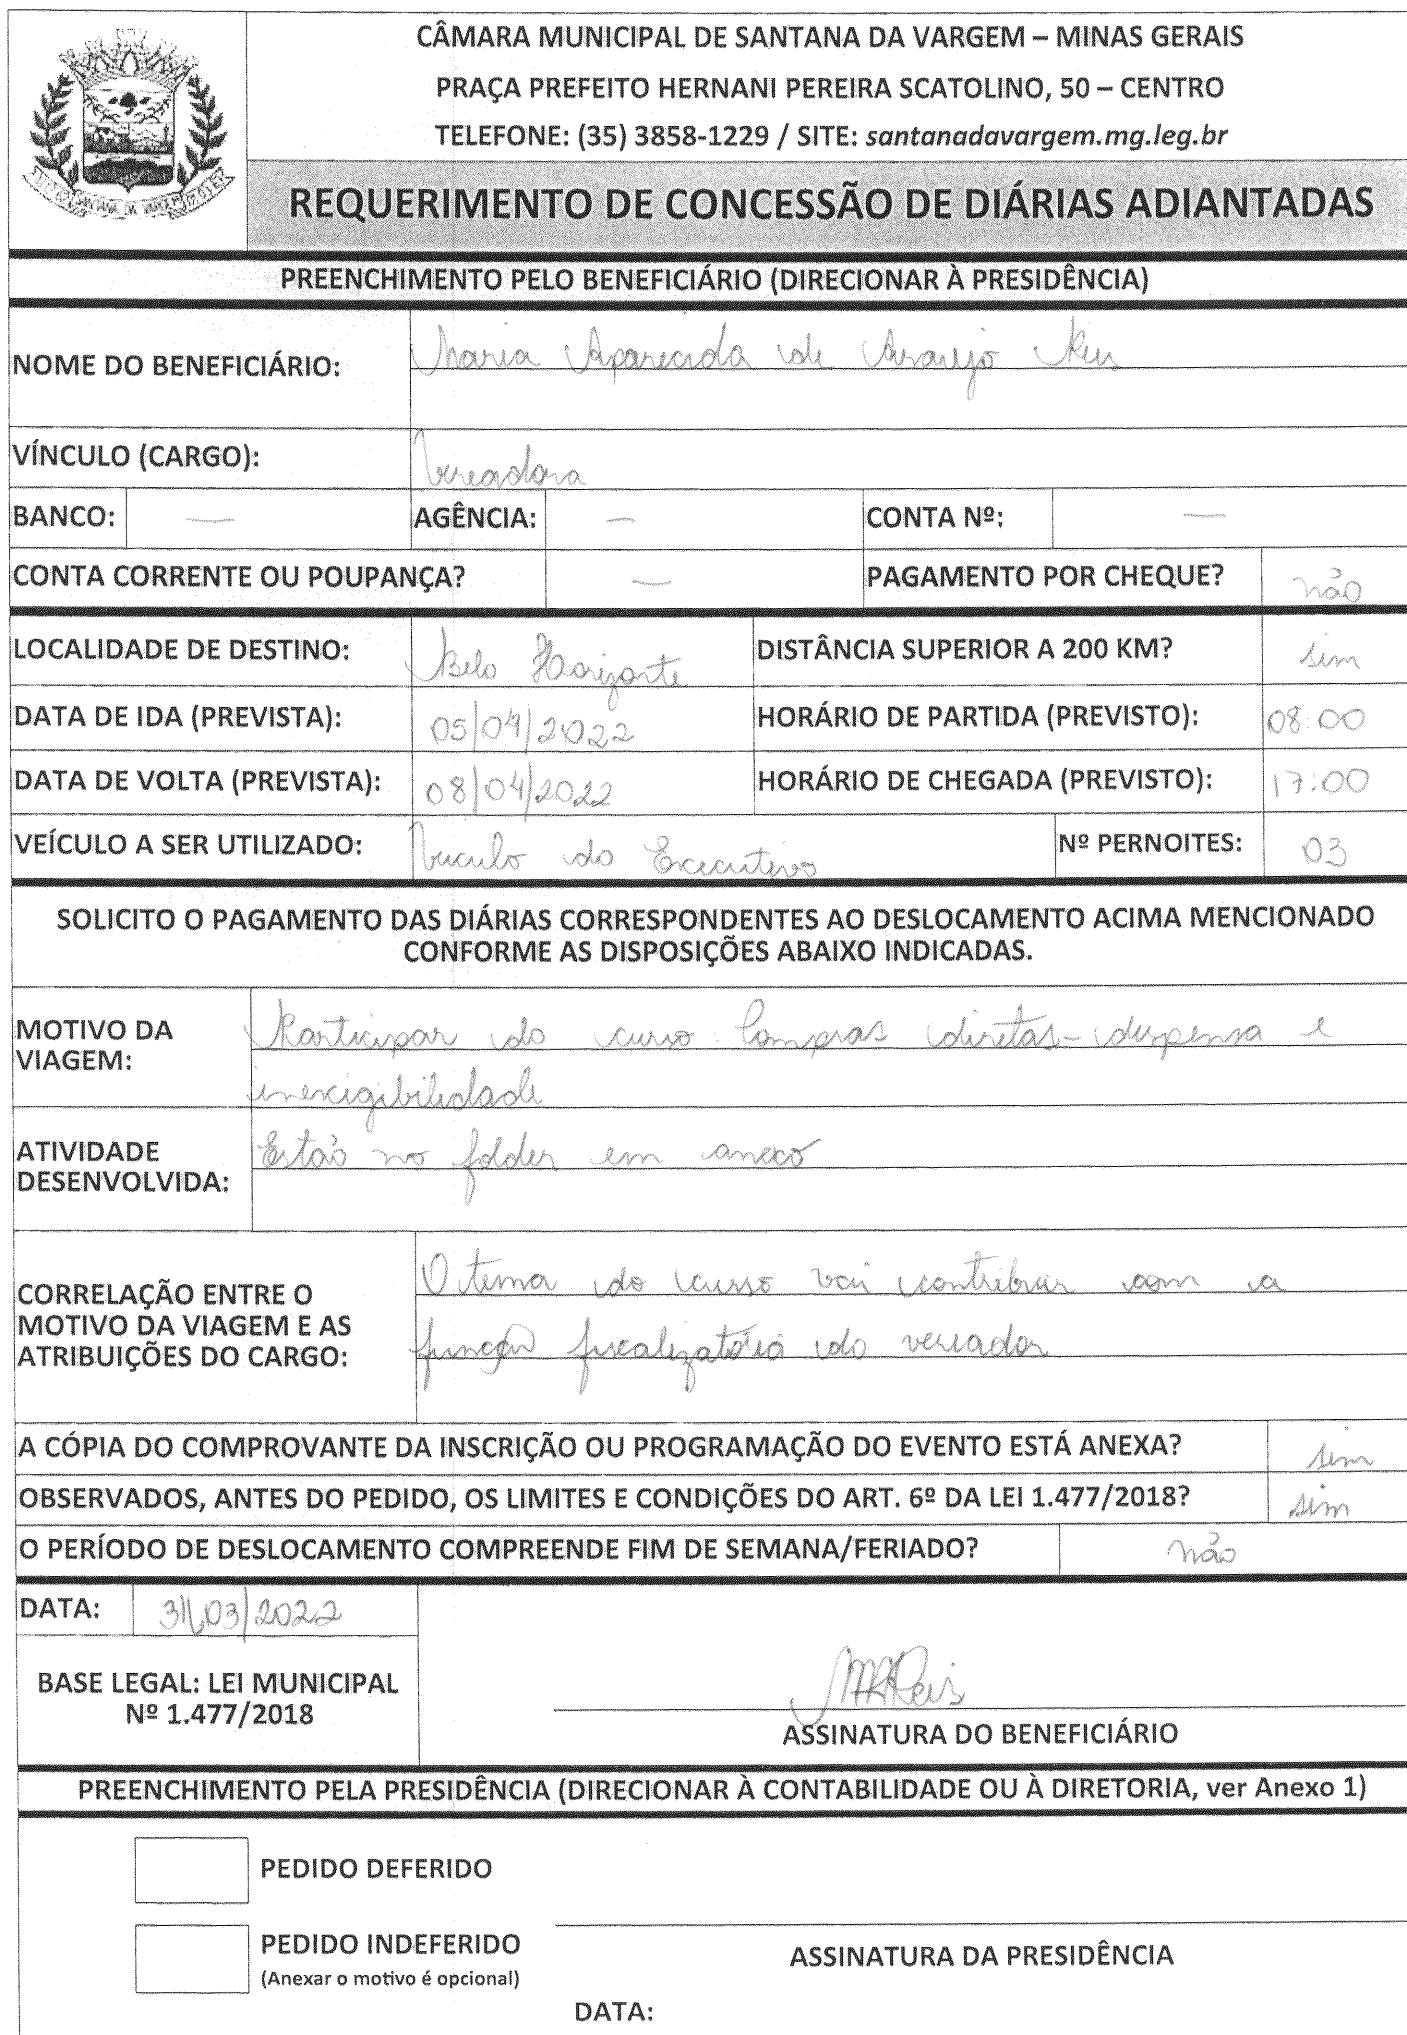 CÂMARA MUNICIPAL DE SANTANA DA VARGEM – MINAS GERAIS
PRAÇA PREFEITO HERNANI PEREIRA SCATOLINO, 50 – CENTRO
TELEFONE: (35) 3858-1229 / SITE: santanadavargem.mg.leg.br
REQUERIMENTO DE CONCESSÃO DE DIÁRIAS ADIANTADAS
PREENCHIMENTO PELO BENEFICIÁRIO (DIRECIONAR À PRESIDÊNCIA)
NOME DO BENEFICIÁRIO: Maria Aparecida de Araujo Reis
VÍNCULO (CARGO): Vereadora
BANCO: — AGÊNCIA: — CONTA Nº: —
CONTA CORRENTE OU POUPANÇA? — PAGAMENTO POR CHEQUE? não
LOCALIDADE DE DESTINO: Belo Horizonte DISTÂNCIA SUPERIOR A 200 KM? sim
DATA DE IDA (PREVISTA): 05/04/2022 HORÁRIO DE PARTIDA (PREVISTO): 08:00
DATA DE VOLTA (PREVISTA): 08/04/2022 HORÁRIO DE CHEGADA (PREVISTO): 17:00
VEÍCULO A SER UTILIZADO: Veículo do Executivo Nº PERNOITES: 03
SOLICITO O PAGAMENTO DAS DIÁRIAS CORRESPONDENTES AO DESLOCAMENTO ACIMA MENCIONADO
CONFORME AS DISPOSIÇÕES ABAIXO INDICADAS.
MOTIVO DA VIAGEM: Participar do curso Compras diretas - dispensa e
inexigibilidade
ATIVIDADE DESENVOLVIDA: Estão no folder em anexo
CORRELAÇÃO ENTRE O MOTIVO DA VIAGEM E AS ATRIBUIÇÕES DO CARGO: O tema do curso vai contribuir com a
função fiscalizatória do vereador
A CÓPIA DO COMPROVANTE DA INSCRIÇÃO OU PROGRAMAÇÃO DO EVENTO ESTÁ ANEXA? sim
OBSERVADOS, ANTES DO PEDIDO, OS LIMITES E CONDIÇÕES DO ART. 6º DA LEI 1.477/2018? sim
O PERÍODO DE DESLOCAMENTO COMPREENDE FIM DE SEMANA/FERIADO? não
DATA: 31/03/2022
BASE LEGAL: LEI MUNICIPAL
Nº 1.477/2018
MAReis
ASSINATURA DO BENEFICIÁRIO
PREENCHIMENTO PELA PRESIDÊNCIA (DIRECIONAR À CONTABILIDADE OU À DIRETORIA, ver Anexo 1)
PEDIDO DEFERIDO
PEDIDO INDEFERIDO
(Anexar o motivo é opcional)
ASSINATURA DA PRESIDÊNCIA
DATA: